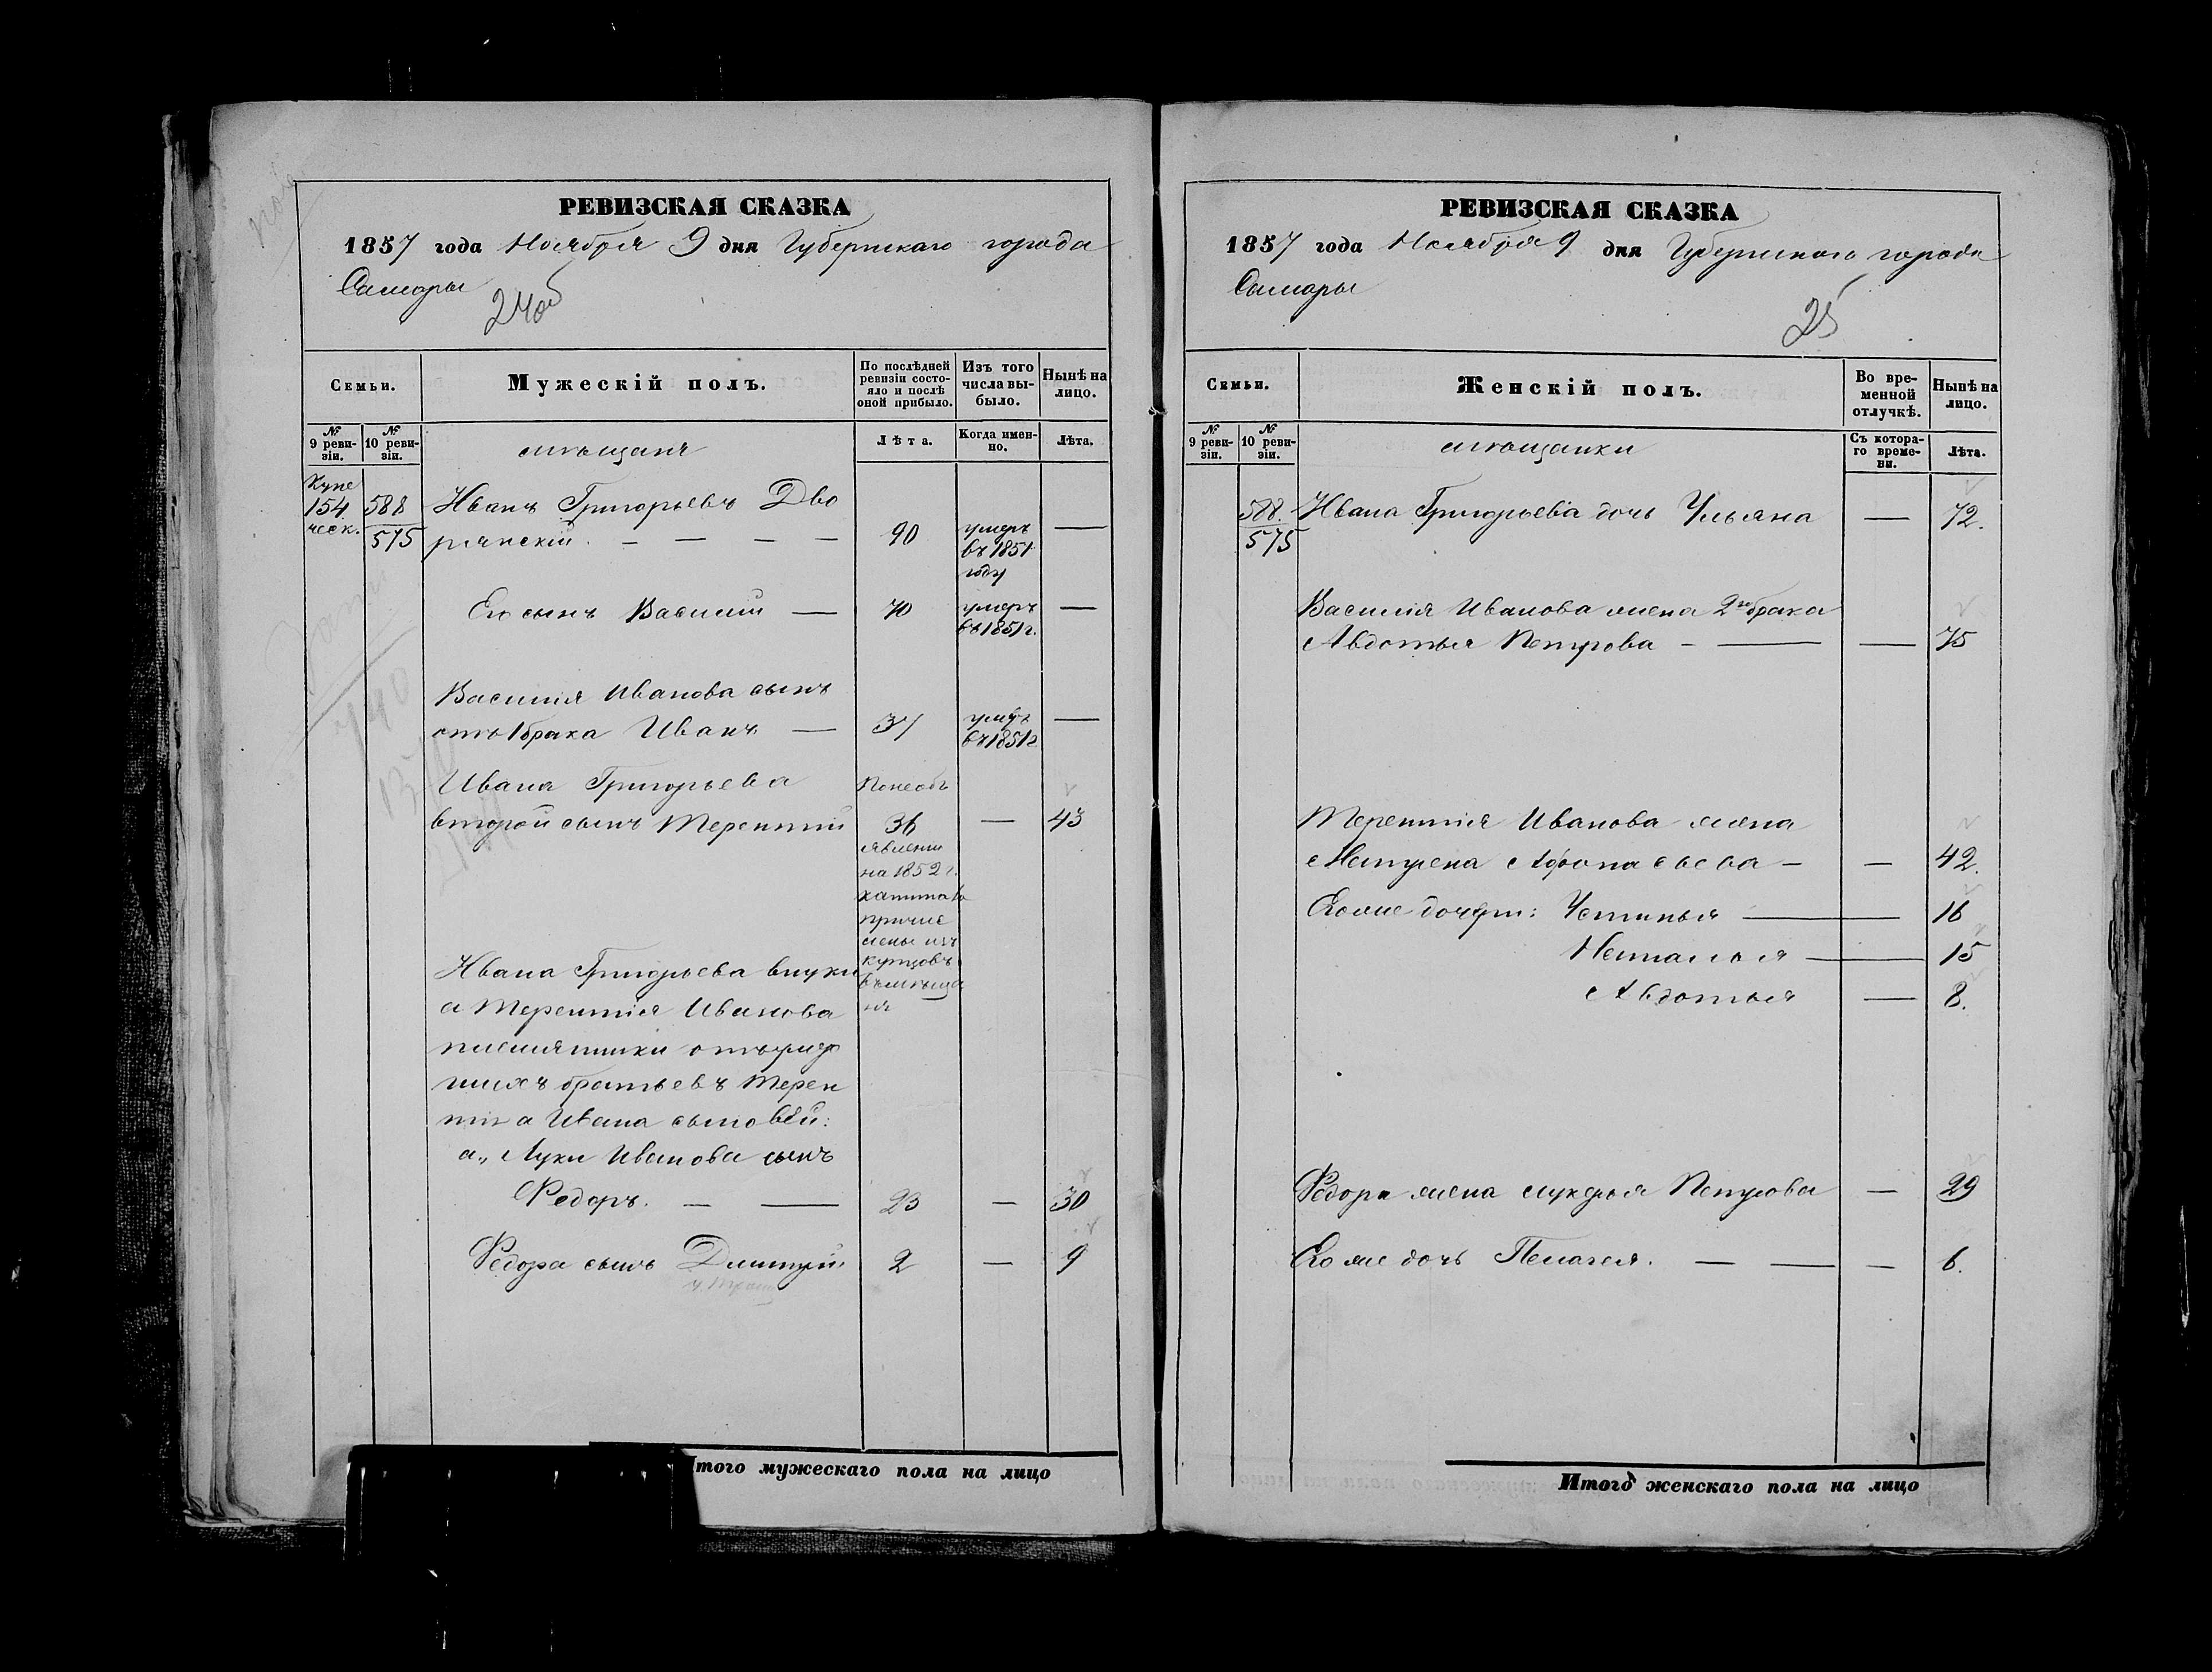 РЕВИЗСКАЯ СКАЗКА
1857 года Ноября 9 дня Губернскаго города
Самары
24об
Семьи.
Мужескій полъ.
По послѣдней ревизіи состо-
яло и послѣ
оной прибыло.
Изъ того
числа вы-
было.
Нынѣ на
лицо.
№
9 реви-
зіи.
№
10 реви-
зіи.
мѣщанѣ
Лѣта.
Когда имен-
но.
Лѣта.
Купе
154
ческ.
588
575
Иванъ Григорьевъ Дво
рянскій. — — — —
90
умеръ
въ 1851
году
—
Его сынъ Василий —
70
умеръ
въ 1851 г.
—
Василія Иванова сынъ
отъ 1 брака Иванъ —
37
умеръ
въ 1851 г
—
Ивана Григорьева
второй сынъ Терентий
Понеобъ
36
явлении
на 1852 г.
капитала
причис
лены изъ
купцовъ
въ мѣща
нѣ
—
43
Ивана Григорьева внуки
а Терентія Иванова
племянники отъ умер
шихъ братьевъ Терен
тія Ивана сыновей:
а., Луки Иванова сынъ
Федоръ. — —
23
—
30
Федора сынъ Дмитрий
2
—
9
Итого мужескаго пола на лицо
РЕВИЗСКАЯ СКАЗКА
1857 года Ноября 9 дня Губернскаго города
Самары
25
Семьи.
Женскій полъ.
Во вре-
менной
отлучкѣ.
Нынѣ на
лицо.
№
9 реви-
зіи.
№
10 реви-
зіи.
мѣщанки
Съ котора-
го време-
ни.
Лѣта.
588.
575
Ивана Григорьева дочь Ульяна — 72.
Василія Иванова жена 2го брака
Авдотья Петрова — — — 75
Терентія Иванова жена
Матрена Афонасьева — — 42.
Его же дочери: Устинья — 16
Наталья — 15
Авдотья — 8.
Федора жена Лукерья Петрова — 29
Его же дочь Пелагея. — — — 6.
Итого женскаго пола на лицо